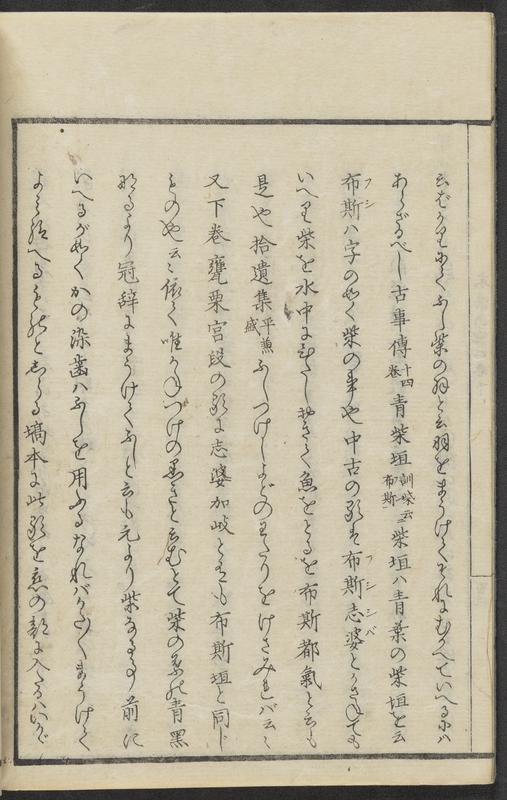 云ばかりにあらふし柴の羽と云羽をまうけてそれにむかへていへるにハ
あらざるべし古事傳十四卷青柴垣訓柴云布斯柴垣ハ青葉の柴垣を云
布斯ハ字の如く柴の事や中古の歌に布斯志婆とかさねても
フシ フシシバ
いへり柴を水中にひたしおきて魚をとるを布斯都氣と云も
是や拾遺集平兼盛ふしつけしよどのわたりをけさみればバ云〻
又下卷甕栗宮段の歌に志婆加岐とあるも布斯垣と同じ
ものや云〻依て唯かねつけの黒きと云むとて柴の葉の青黑
なるより冠辞にまうけてふしと云も元より柴なる事前に
いへるが如くかの染齒ハふしを用ふるなれバかたくまうけて
よみ給へるものと云るる
塙本に此歌を恋の部に入たるハいかゞ